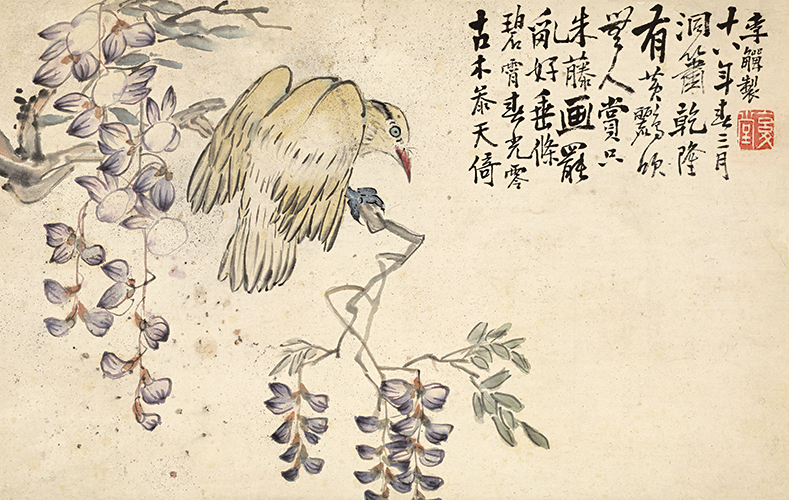 古木叅天倚
碧霄春光零
亂好垂條
朱藤画罷
無人賞只
有黃鸝頌
洞簫乾隆
十八年春三月
李觶製